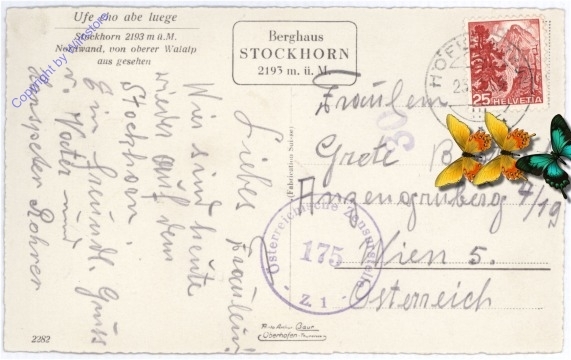 Ufe cho abe luege
Stockhorn 2193 m ü.M.
Nordwand, von oberer Walalp
aus gesehen
Berghaus
STOCKHORN
2193 m. ü. M.
Copyright by
25 HELVETIA
Liebes Fräulein!
Wir sind heute
wieder auf dem
Stockhorn.
Ein freundl. Gruss
v. Vater und
Hanspeter Rohrer
(Fabrication Suisse)
Fräulein
Grete
Anzengruberg 7/19
Wien 5.
Österreich
Österreichische Zensurstelle
175
Z 1
30
2282
Gaur
Oberhofen